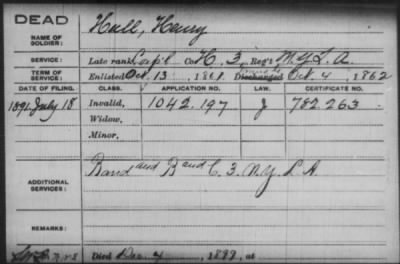 DEAD
NAME OF SOLDIER: Hall, Henry
SERVICE: Late rank, Corp'l Co. H, 3, Reg't N.Y. L. A.
TERM OF SERVICE: Enlisted Oct. 13, 1861 Discharged Oct. 4, 1862
DATE OF FILING. CLASS. APPLICATION NO. LAW. CERTIFICATE NO.
1891, July 18 Invalid, 1042.197 J 782.263
Widow,
Minor,
ADDITIONAL SERVICES: Band and Band C. 3. N.Y. L. A.
REMARKS:
Died Dec. 4, 1899, at